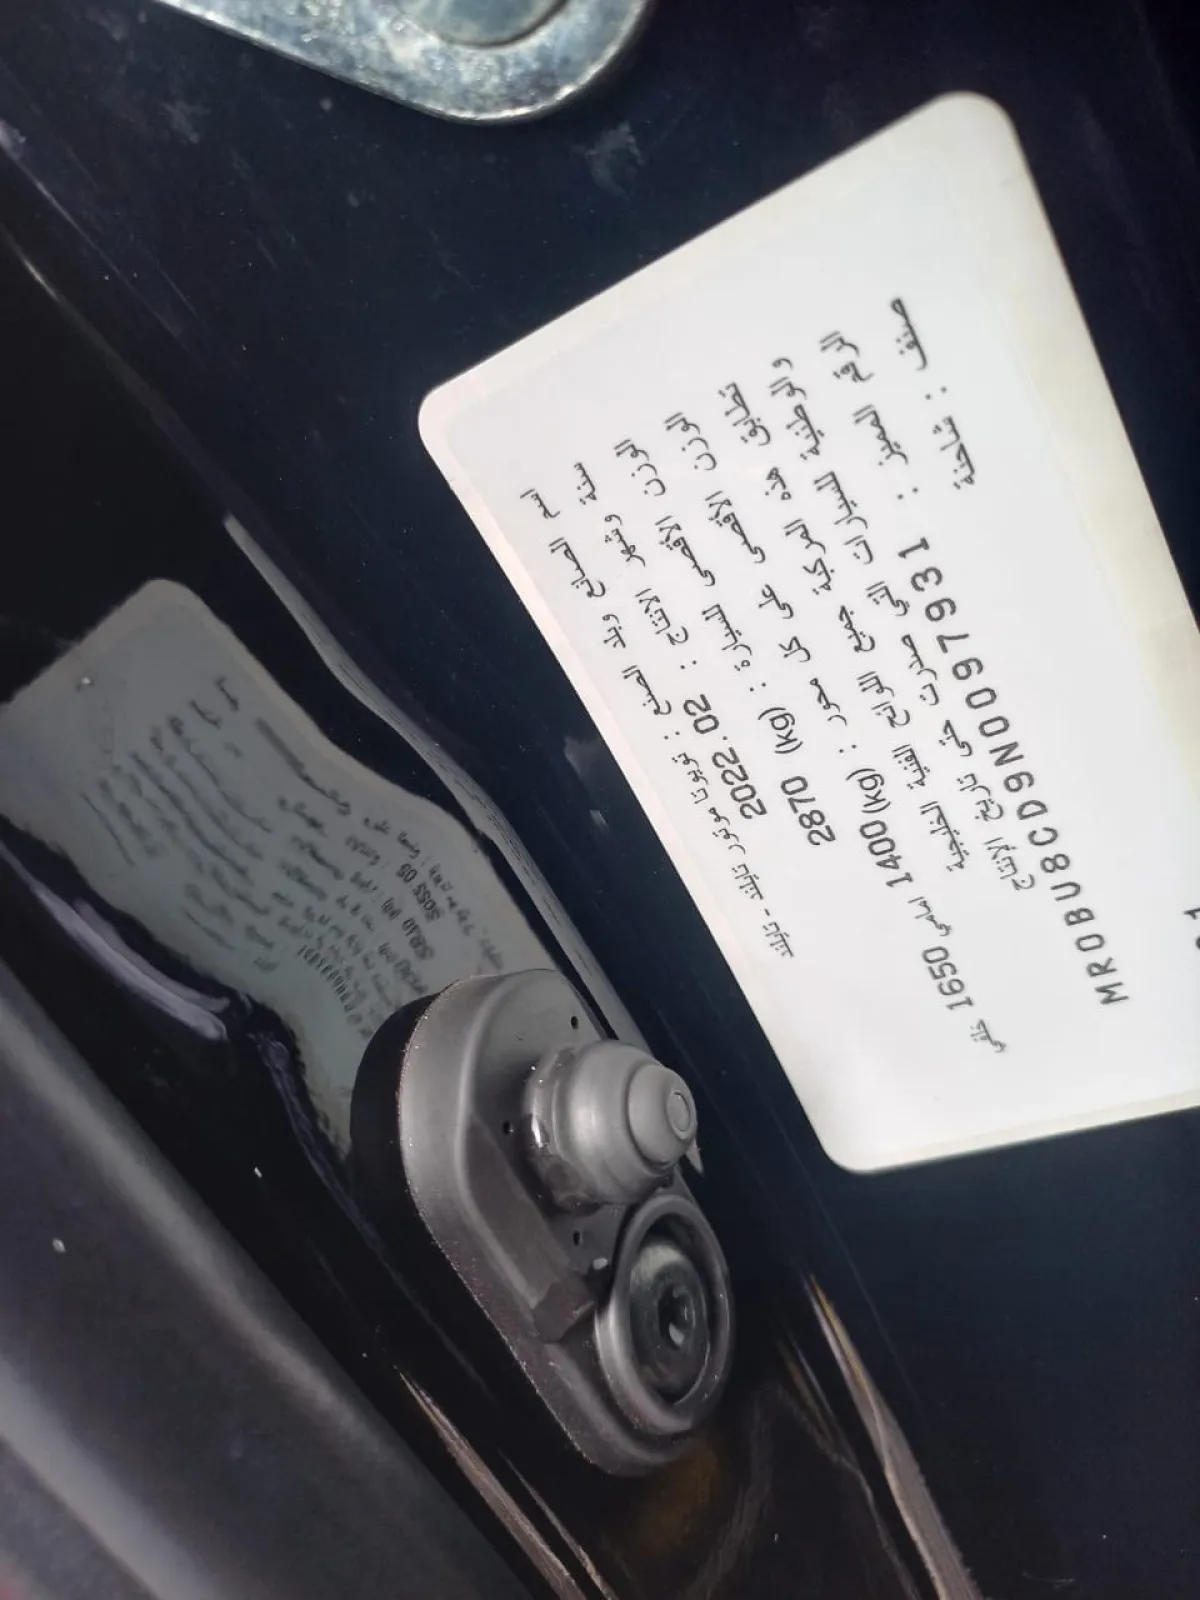 اسم الصانع وبلد الصنع : تويوتا موتور تايلند - تايلند
سنة وشهر الانتاج : 2022.02
الوزن الاقصى للسيارة : (kg) 2870
الوزن الاقصى على كل محور : (kg) 1400 امامي 1650 خلفي
تطابق هذه المركبة جميع اللوائح الفنية الخليجية
و الوطنية للسيارات التي صدرت حتى تاريخ الإنتاج
الرقم المميز : MR0BU8CD9N0097931
صنف : شاحنة